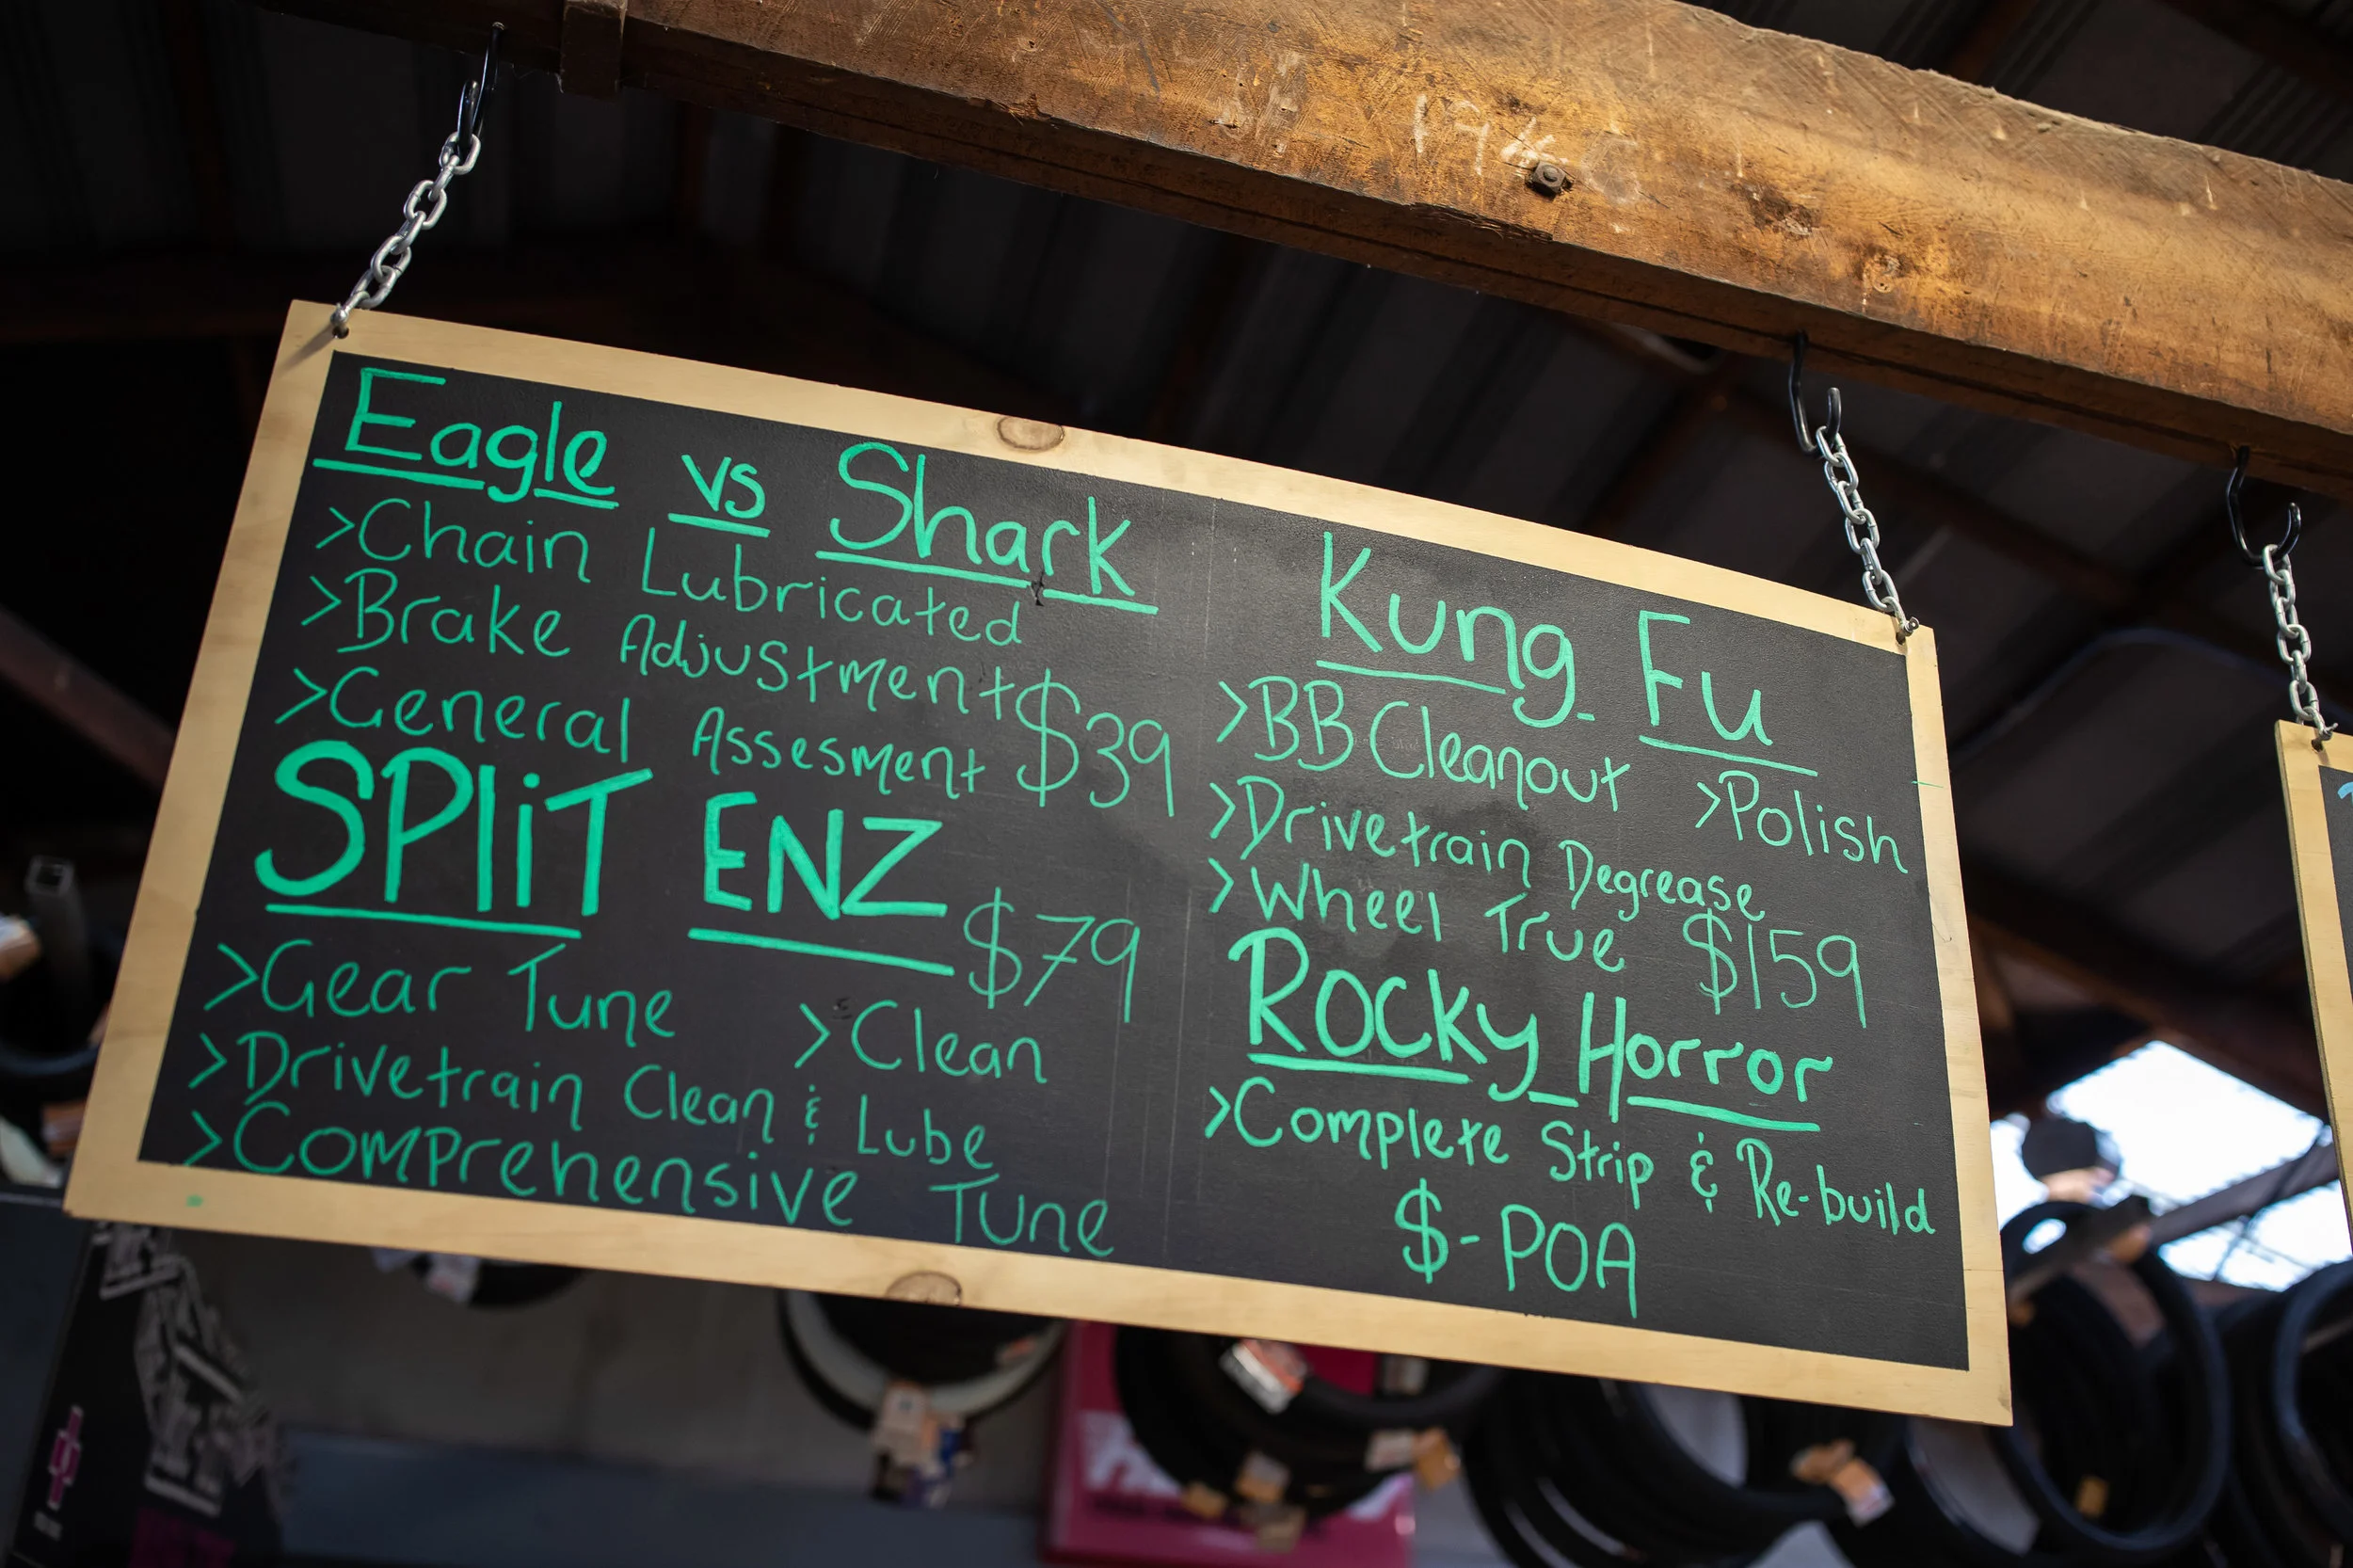 Eagle vs Shark
>Chain Lubricated
>Brake Adjustment
>General Assesment $39
SPLiT ENZ $79
>Gear Tune >Clean
>Drivetrain Clean & Lube
>Comprehensive Tune
Kung Fu
>BB Cleanout >Polish
>Drivetrain Degrease
>Wheel True $159
Rocky Horror
>Complete Strip & Re-build
$-POA